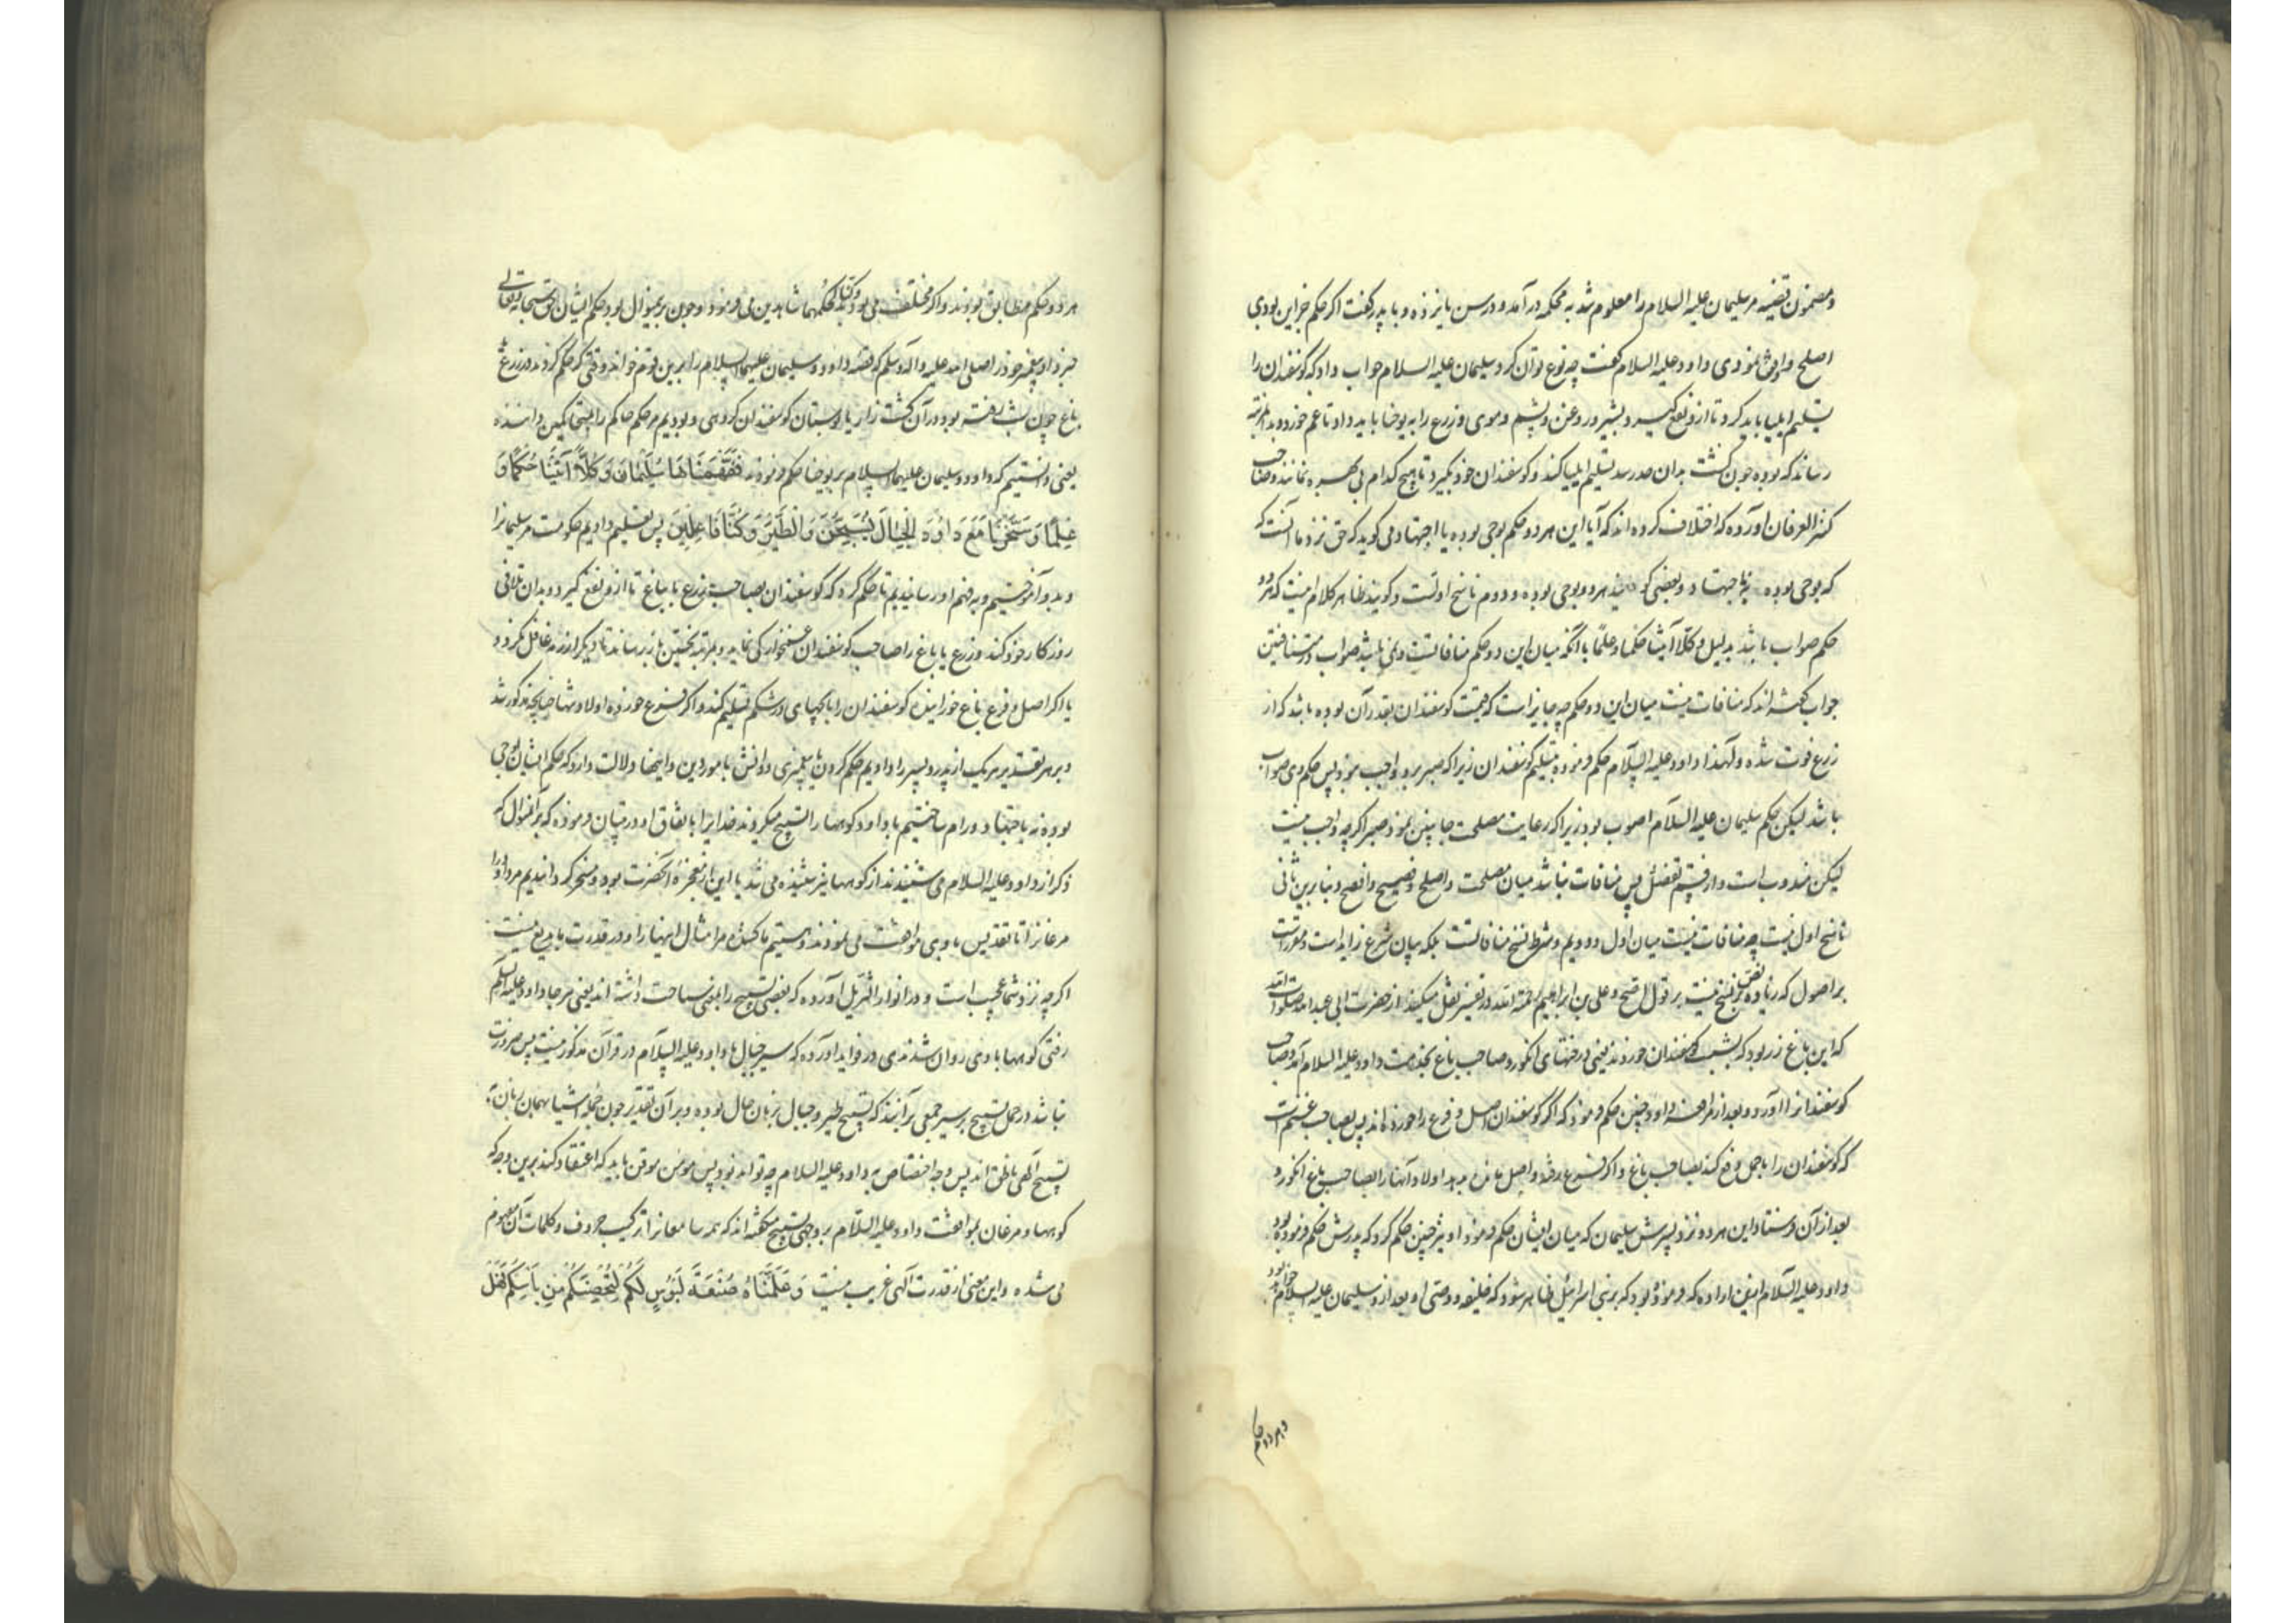 ومضمون قضیه مر سلیمان علیه السلام را معلوم شد به محکمه در آمد و در سن یازده و با پدر گفت اکر حکم جز این بودی
اصلح واوفق نمودی داود علیه السلام کفت چه نوع توان کرد سلیمان علیه السلام جواب داد که کوسفندان را
تسلیم ایلیا باید کرد تا از و نفع کیرد و بشیر و روغن و پشم و موی و زرع را به یوخنا باید داد تا غم خورد و بدان مرتبه
رساند که بوده چون کشت بدان حد رسد تسلیم ایلیا کند و کوسفندان خود بکیرد تا هیچ کدام بی بهره نمانند وصاحب
کنز العرفان آورده که اختلاف کرده اند که آیا این هر دو حکم بوحی بوده یا اجتهاد و می کوید که حق نزد ما آنست که
که بوحی بوده نه باجتهاد و بعضی کویند هر دو بوحی بوده و دوم ناسخ اولست و کویند ظاهر کلام اینست که هر دو
حکم صواب باشد بدلیل و کلا آتینا حکما و علما با آنکه میان این دو حکم منافاتست و نمی باشد صواب در متنافیین
جواب کفته اند که منافات نیست میان این دو حکم چه جایز است که قیمت کوسفندان بقدر آن بوده باشد که از
زرع فوت شده و لهذا داود علیه السلام حکم فرموده بتسلیم کوسفندان زیرا که صبر برو واجب نبود پس حکم وی صواب
باشد لیکن حکم سلیمان علیه السلام اصوب بود زیرا که رعایت مصلحت جانبین نمود و صبر اکر چه واجب نیست
لیکن مندوب است و از قسم تفضل پس منافات نباشد میان مصلحت و اصلح و فصیح و افصح و بنابرین ثانی
ناسخ اول نیست چه منافات نیست میان اول و دویم و شرط نسخ منافاتست بلکه بیان شرع زاید است و مقررست
بر اصول که زیاده بر نص نسخ نیست بر قول اصح و علی بن ابراهیم رحمة الله در تفسیر نقل میکند از حضرت ابی عبد الله صلوات الله
که این باغ زر بود که بشب کوسفندان خوردند یعنی درختهای انکور و صاحب باغ بخدمت داود علیه السلام آمد و صاحب
کوسفندان را آورد و بعد از مرافعه داود چنین حکم فرمود که اکر کوسفندان اصل و فرع را خورده اند پس بصاحب غنم است
که کوسفندان را با حمل دفع کند بصاحب باغ و اکر فرع رفته و اصل مانده بدهد اولاد آنها را بصاحب باغ انکور و
بعد از آن فرستاد این هر دو نزد پسرش سلیمان که میان ایشان حکم فرمود او نیز چنین حکم کرد که پدرش حکم فرموده بود
داود علیه السلام این اراده که فرموده بود که بر بنی اسرائیل ظاهر شود که خلیفه و وصی او بعد از و سلیمان علیه السلام خواهد بود
و هر دو حکم
هر دو حکم مطابق بودند و اکر مختلف می بود و کنا لحکمهما شاهدین می فرمود و چون برینموال بود حکم ایشان حق سبحانه و تعالی
خبر داد پیغمبر خود را صلی الله علیه و آله وسلم که قصه داود و سلیمان علیهما السلام را برین قوم خواند وقتی که حکم کردند در زرع
باغ چون بشب رفته بود در آن کشت زار یا بوستان کوسفندان کروهی و بودیم مر حکم حاکم را و متحاکمین داننده
یعنی دانستیم که داود و سلیمان علیهما السلام بر یوخنا حکم فرمودند فَفَهَّمْنَاهَا سُلَیْمَانَ وَکُلًّا آتَیْنَا حُکْمًا وَ
عِلْمًا وَسَخَّرْنَا مَعَ دَاوُدَ الْجِبَالَ یُسَبِّحْنَ وَالطَّیْرَ وَکُنَّا فَاعِلِینَ پس تعلیم دادیم حکومت مر سلیمانرا
و بدو آموختیم و به فهم او رسانیدیم تا حکم کرد که کوسفندان بصاحب زرع یا باغ تا از و نفع کیرد و بدان تلافی
روزکار خود کند و زرع یا باغ را صاحب کوسفندان غمخوارکی نماید و بمرتبه نخستین باز رساند تا دیکر از رمه غافل نکردد
یا اکر اصل و فرع باغ خورانیده کوسفندان را با بچهای در شکم تسلیم کند و اکر فرع خورده اولاد و نتاج چنانچه مذکور شد
و بر هر تقدیر هر یک از پدر و پسر را دادیم حکم کردن تا پیغمبری و دانش بامور دین و اینها دلالت دارد که حکم ایشان بوحی
بوده نه باجتهاد و رام ساختیم با داود کوهها را تسبیح میکردند خدایرا باتفاق او در تبیان فرموده که بر آنموال که
ذکر از داود علیه السلام می شنیدند از کوهها نیز شنیده می شد یا این از معجزه آنحضرت بود و مسخر کردانیدیم مر داود را
مرغانرا تا تقدیس با وی مرافقت می نمودند و هستیم ما کننده مر امثال اینها را و در قدرت ما بدیع نیست
اکر چه نزد شما عجیب است و در انوار التنزیل آورده که بعضی تسبیح را بمعنی سیاحت داشته اند یعنی هر جا داود علیه السلام
رفتی کوهها با وی روان شدندی در فواید آورده که سیر جبال با داود علیه السلام در قرآن مذکور نیست پس ضرورت
نباشد در حمل تسبیح بر سیر جمعی برآنند که تسبیح طیر و جبال بزبان حال بوده و بر آن تقدیر چون جمله اشیا بهمان زبان
تسبیح آلهی ناطق اند پس وجه اختصاص به داود علیه السلام چه تواند بود پس مؤمن موقن باید که اعتقاد کند برین وجه که
کوهها و مرغان بموافقت داود علیه السلام بر وجهی تسبیح میکفته اند که همه سامعانرا ترکیب حروف و کلمات آن مفهوم
می شده و این معنی از قدرت آلهی غریب نیست وَعَلَّمْنَاهُ صَنْعَةَ لَبُوسٍ لَکُمْ لِتُحْصِنَکُمْ مِنْ بَأْسِکُمْ فَهَلْ